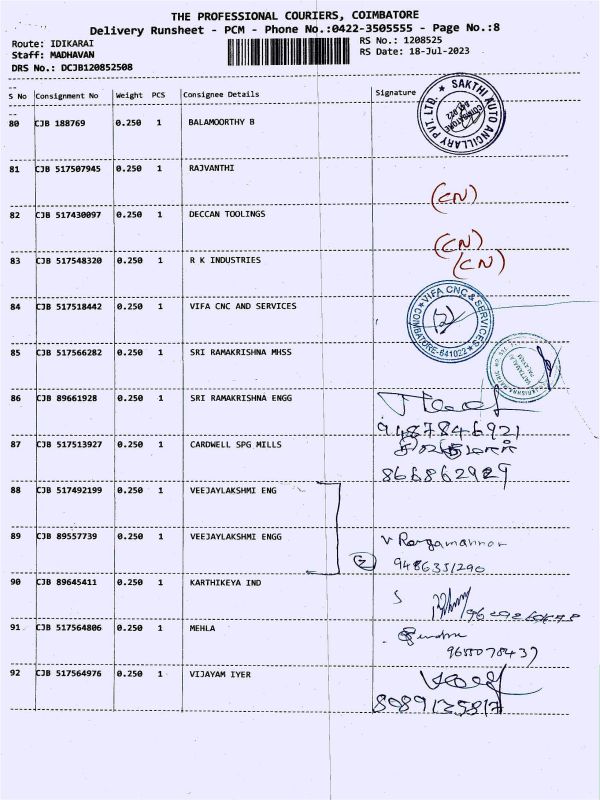 THE PROFESSIONAL COURIERS, COIMBATORE
Delivery Runsheet - PCM - Phone No.:0422-3505555 - Page No.:8
Route: IDIKARAI RS No.: 1208525
Staff: MADHAVAN RS Date: 18-Jul-2023
DRS No.: DCJB120852508
S No Consignment No Weight PCS Consignee Details Signature
80 CJB 188769 0.250 1 BALAMOORTHY B
SAKTHI AUTO ANCILLARY PVT LTD.
81 CJB 517507945 0.250 1 RAJVANTHI
(CN)
82 CJB 517430097 0.250 1 DECCAN TOOLINGS
(CN)
83 CJB 517548320 0.250 1 R K INDUSTRIES
(CN)
84 CJB 517518442 0.250 1 VIFA CNC AND SERVICES
VIFA CNC & SERVICES
COIMBATORE-641022
(2)
85 CJB 517566282 0.250 1 SRI RAMAKRISHNA MHSS
86 CJB 89661928 0.250 1 SRI RAMAKRISHNA ENGG
9487846921
87 CJB 517513927 0.250 1 CARDWELL SPG MILLS
866862929
88 CJB 517492199 0.250 1 VEEJAYLAKSHMI ENG
89 CJB 89557739 0.250 1 VEEJAYLAKSHMI ENGG
V Rangamannar
(2) 9486351290
90 CJB 89645411 0.250 1 KARTHIKEYA IND
91 CJB 517564806 0.250 1 MEHLA
9655078437
92 CJB 517564976 0.250 1 VIJAYAM IYER
8089125817